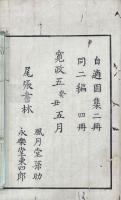 自適園集二冊
同二編 四冊
寛政五癸丑五月
尾張書林
風月堂孫助
永樂堂東四郎